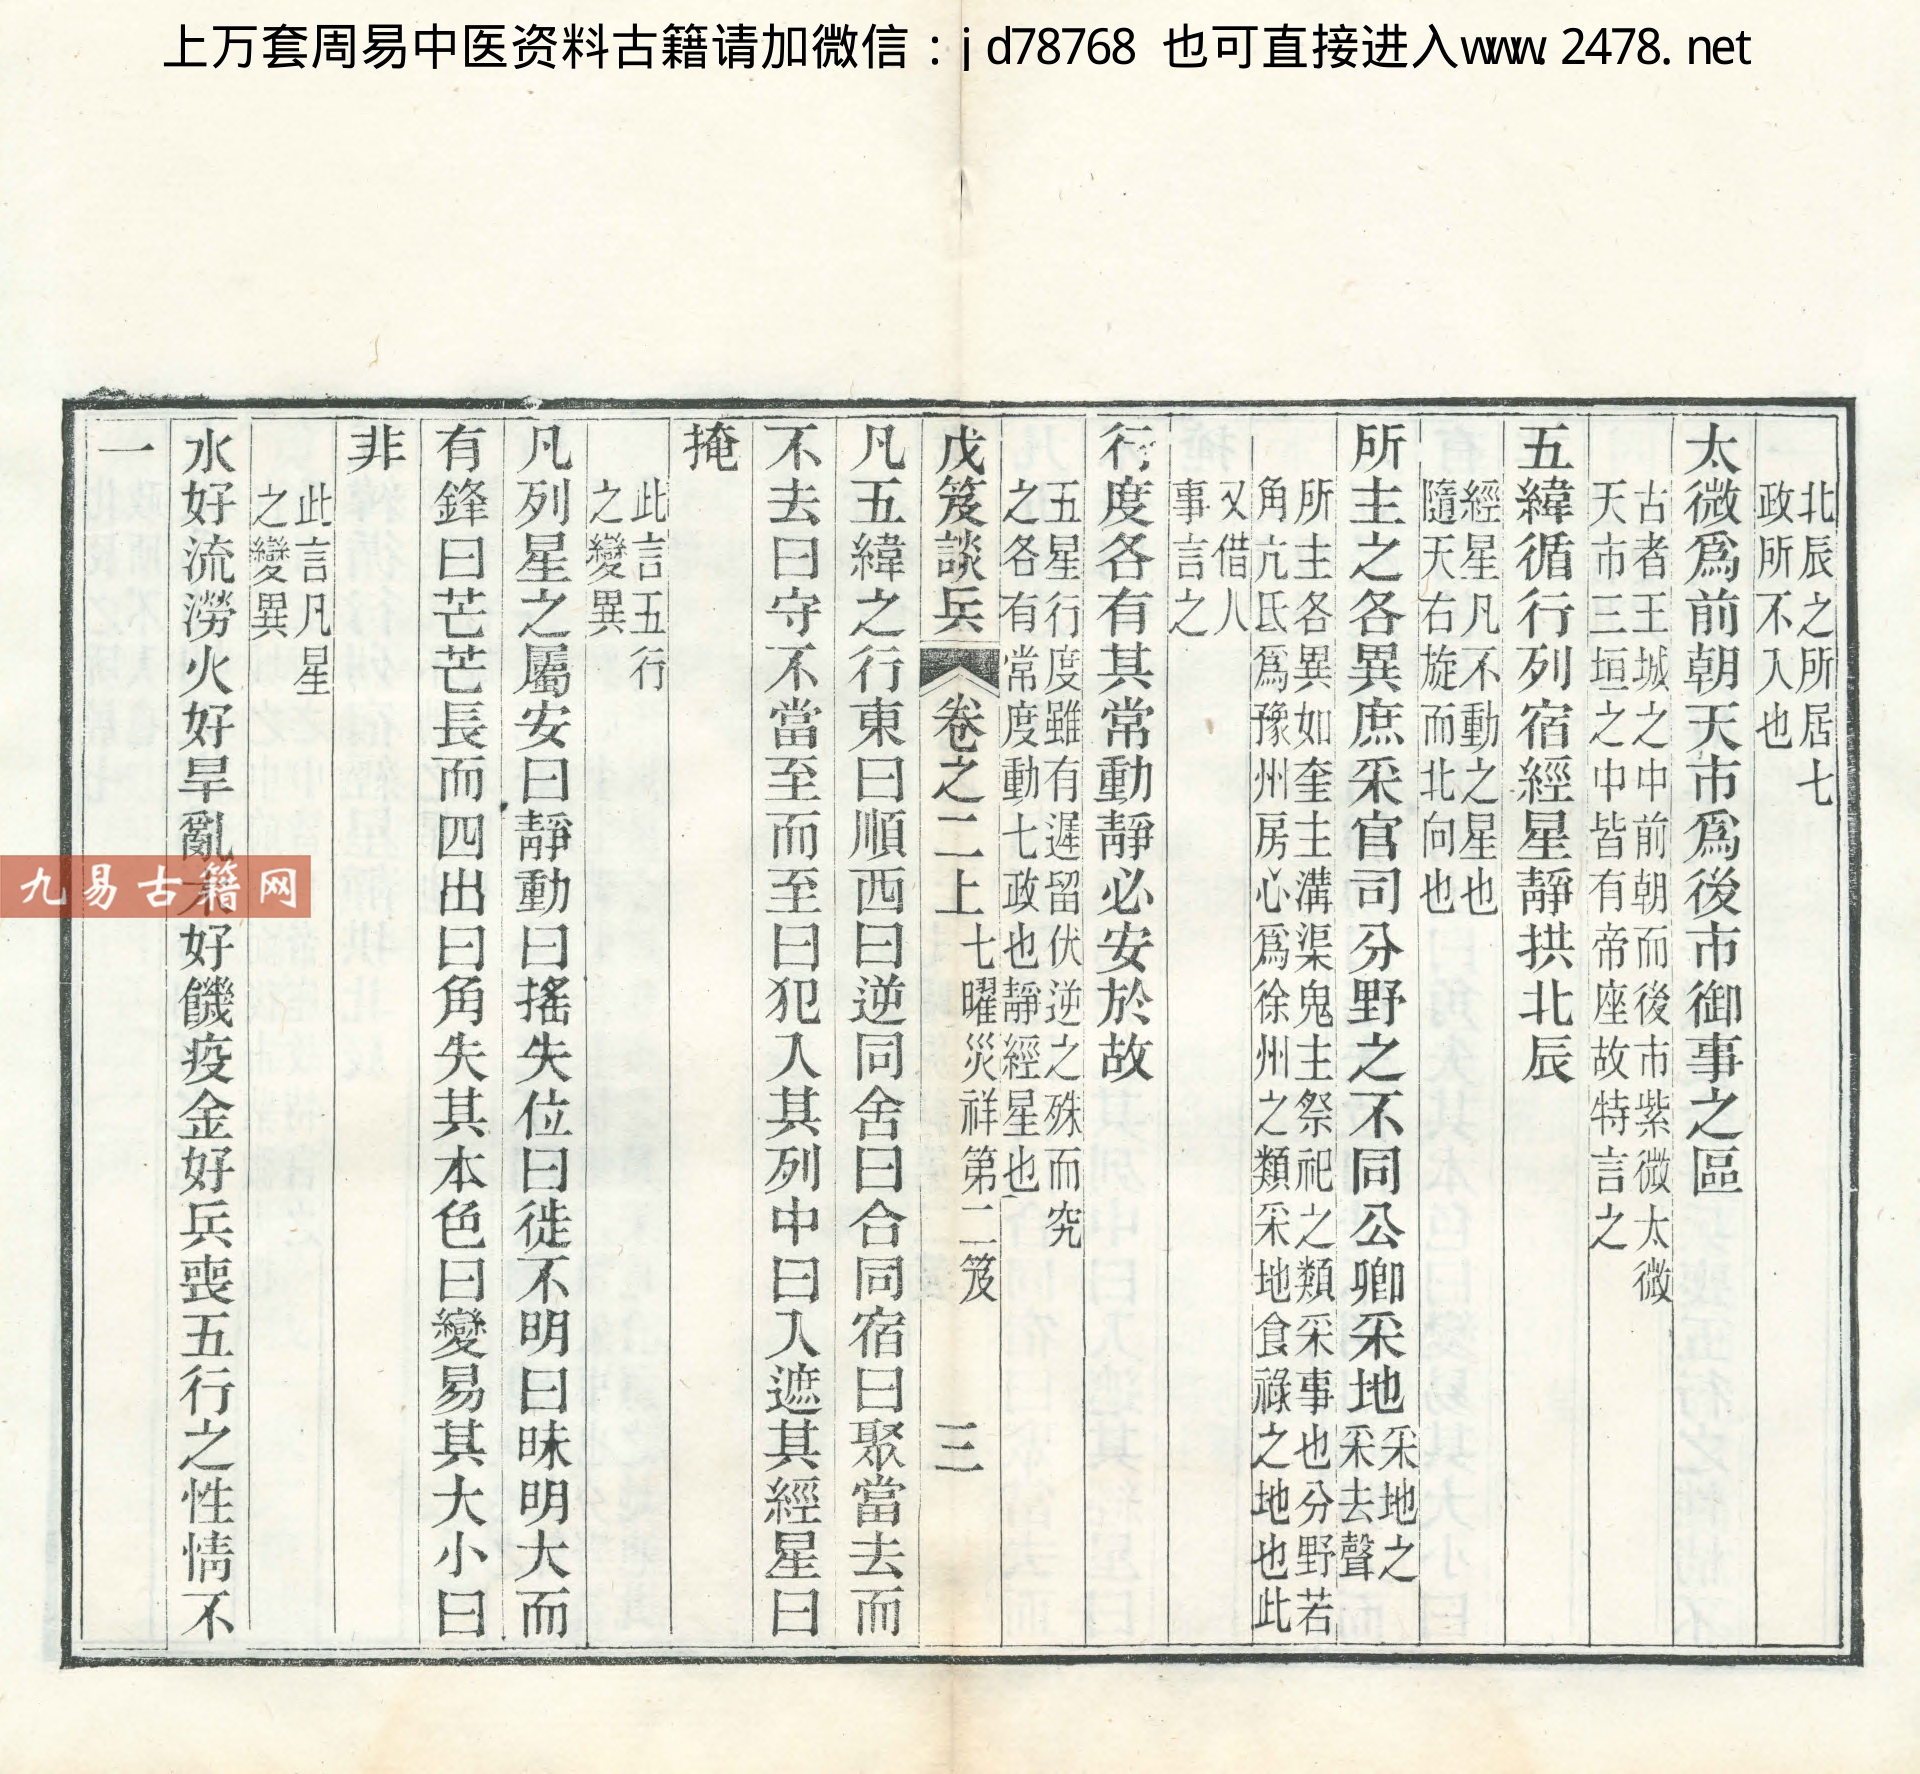 上万套周易中医资料古籍请加微信：jd78768 也可直接进入www.2478.net
北辰之所居七
政所不入也
太微爲前朝天市爲後市御事之區
古者王城之中前朝而後市紫微太微
天市三垣之中皆有帝座故特言之
五緯循行列宿經星靜拱北辰
經星凡不動之星也
隨天右旋而北向也
所主之各異庶采官司分野之不同公卿采地
采地之
采去聲
所主各異如奎主溝渠鬼主祭祀之類采事也分野若
角亢氐爲豫州房心爲徐州之類采地食祿之地也此
又借人
事言之
行度各有其常動靜必安於故
五星行度雖有遲留伏逆之殊而究
之各有常度動七政也靜經星也
戊笈談兵 卷之二上 七曜災祥第二笈 三
凡五緯之行東曰順西曰逆同舍曰合同宿曰聚當去而
不去曰守不當至而至曰犯入其列中曰入遮其經星曰
掩
此言五行
之變異
凡列星之屬安曰靜動曰搖失位曰徙不明曰昧明大而
有鋒曰芒芒長而四出曰角失其本色曰變易其大小曰
非
此言凡星
之變異
水好流澇火好旱亂木好饑疫金好兵喪五行之性情不
一
九易古籍网